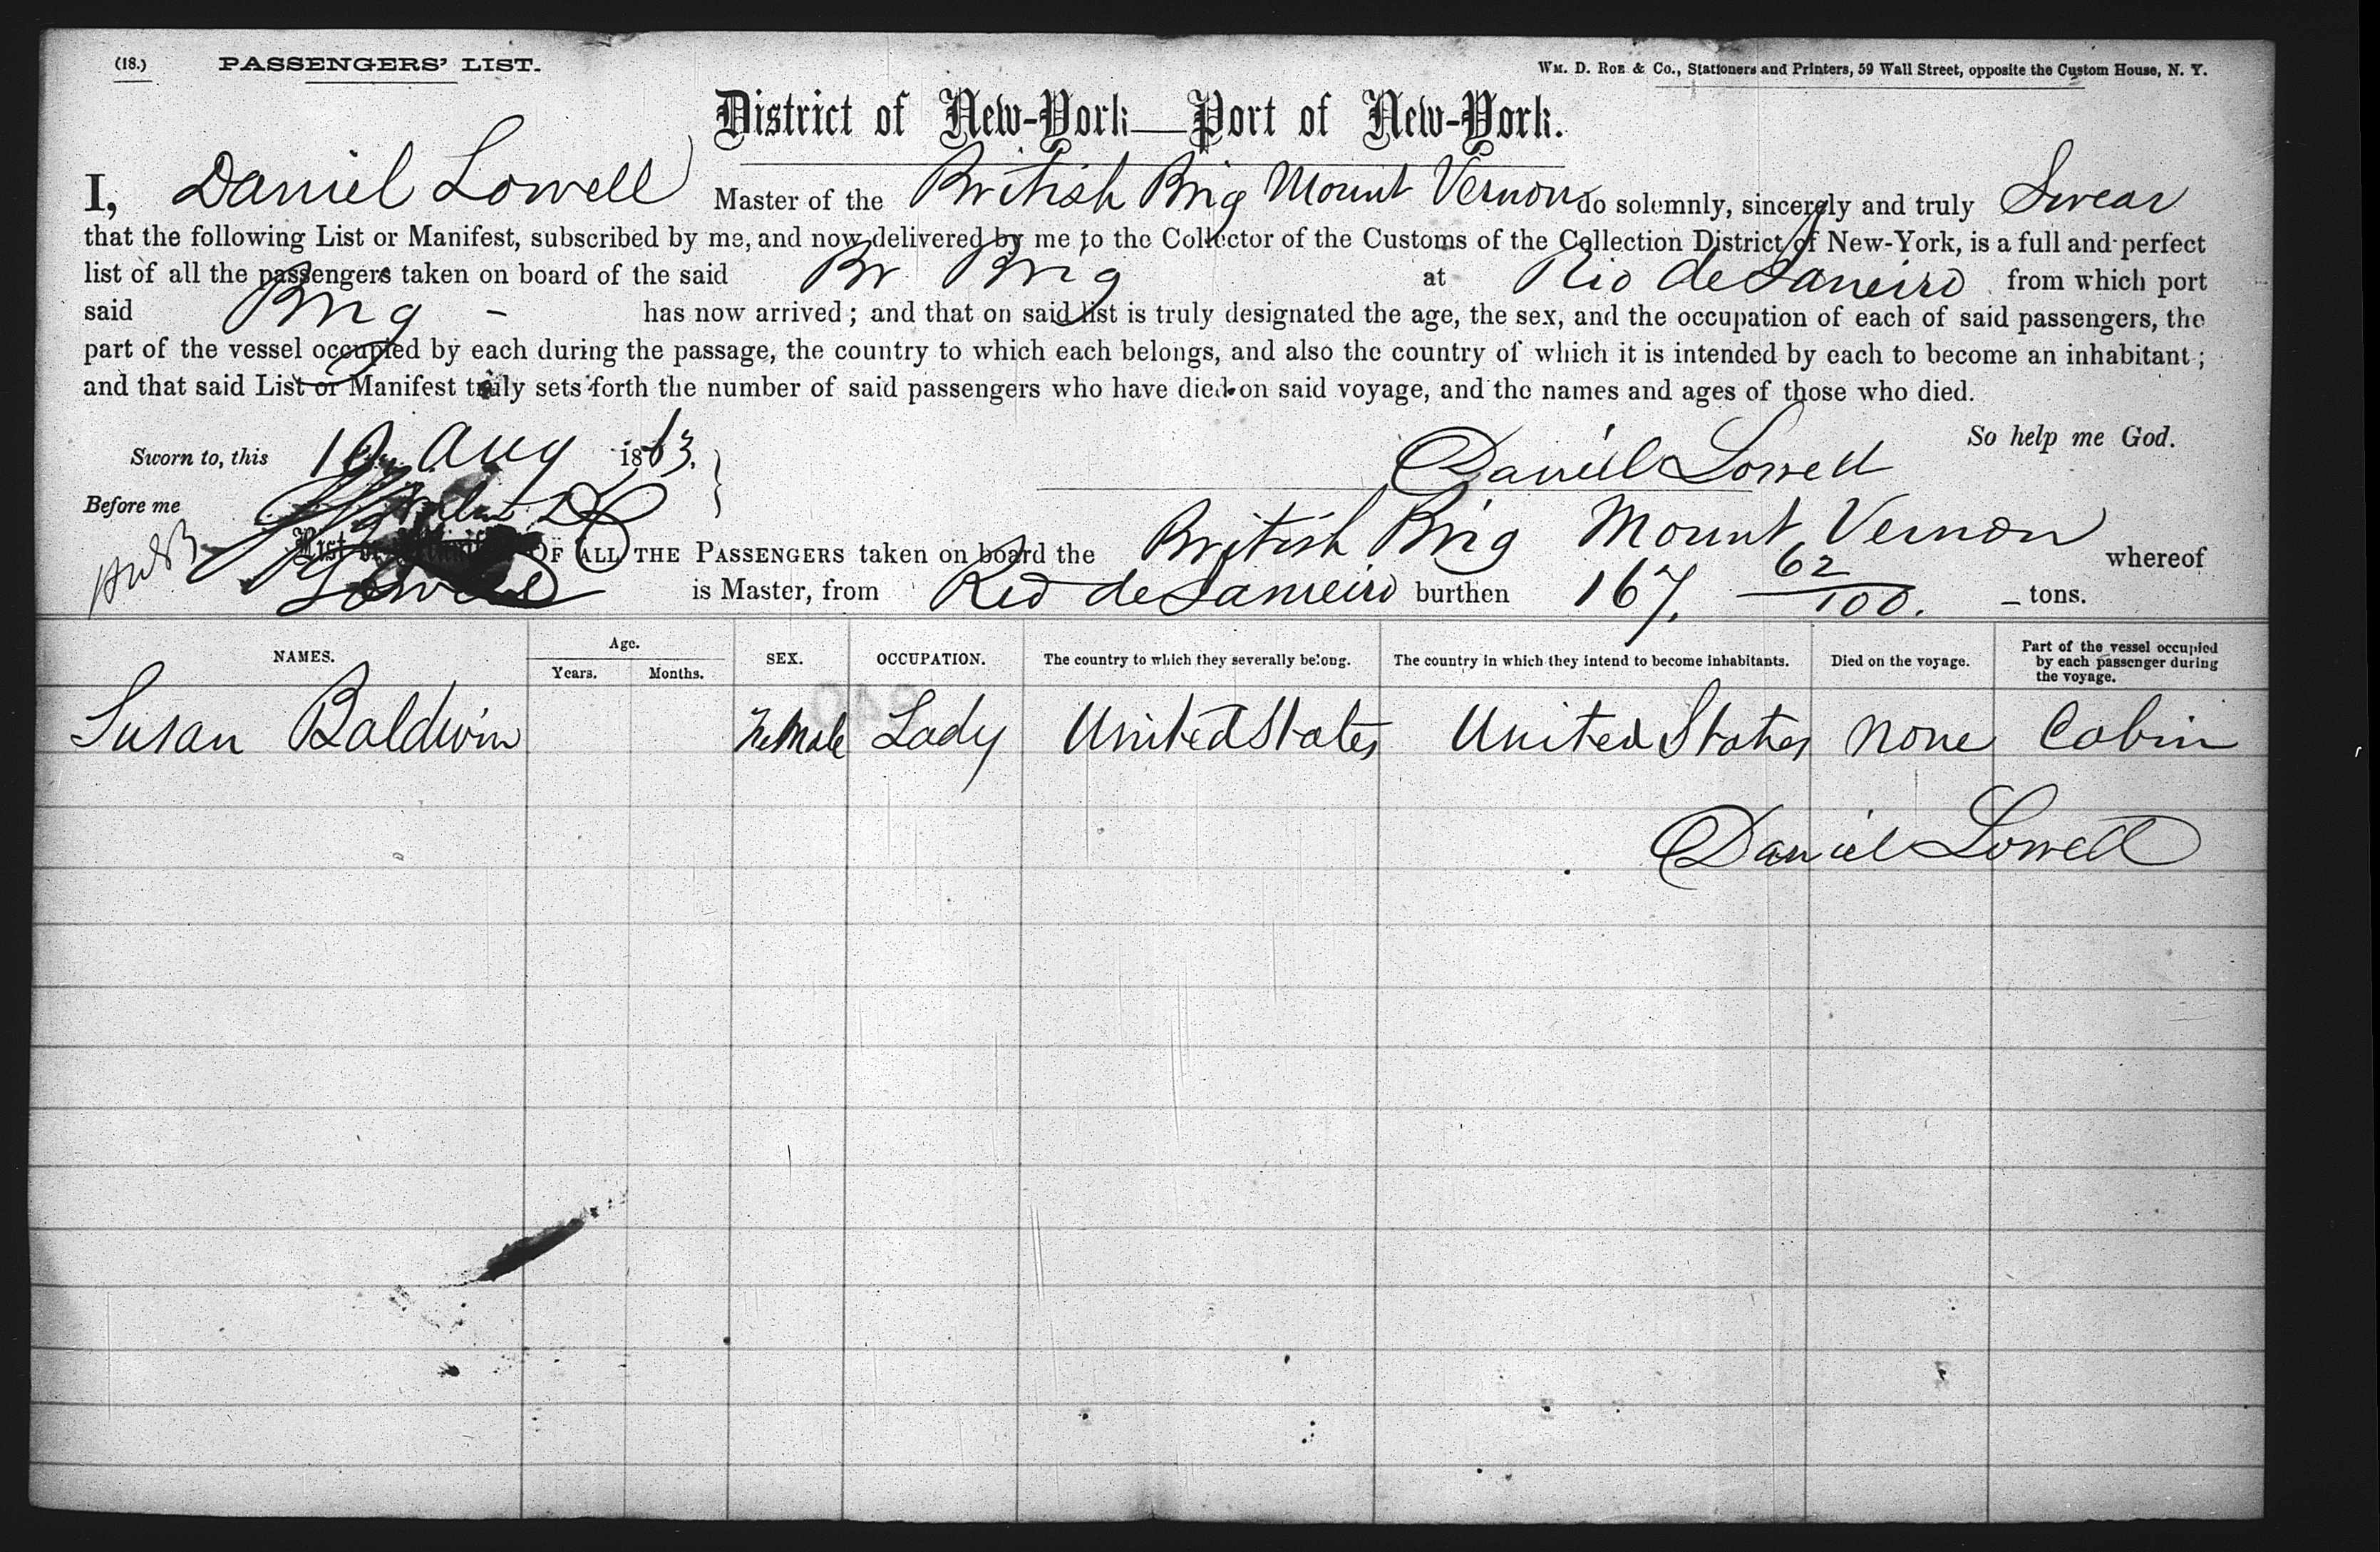 (18.) PASSENGERS' LIST.
Wm. D. Roe & Co., Stationers and Printers, 59 Wall Street, opposite the Custom House, N. Y.
District of New-York—Port of New-York.
I, Daniel Lowell Master of the British Brig Mount Vernon do solemnly, sincerely and truly Swear
that the following List or Manifest, subscribed by me, and now delivered by me to the Collector of the Customs of the Collection District of New-York, is a full and perfect
list of all the passengers taken on board of the said Br Brig at Rio de Janeiro from which port
said Brig - has now arrived; and that on said list is truly designated the age, the sex, and the occupation of each of said passengers, the
part of the vessel occupied by each during the passage, the country to which each belongs, and also the country of which it is intended by each to become an inhabitant;
and that said List or Manifest truly sets forth the number of said passengers who have died on said voyage, and the names and ages of those who died.
So help me God.
Sworn to, this 10 Aug 1863.
Daniel Lowell
Before me
List or Manifest OF ALL THE PASSENGERS taken on board the British Brig Mount Vernon whereof
Lowell is Master, from Rio de Janeiro burthen 167. 62/100. tons.
NAMES. Age. Years. Months. SEX. OCCUPATION. The country to which they severally belong. The country in which they intend to become inhabitants. Died on the voyage. Part of the vessel occupied by each passenger during the voyage.
Susan Baldwin Female Lady United States United States None Cabin
Daniel Lowell